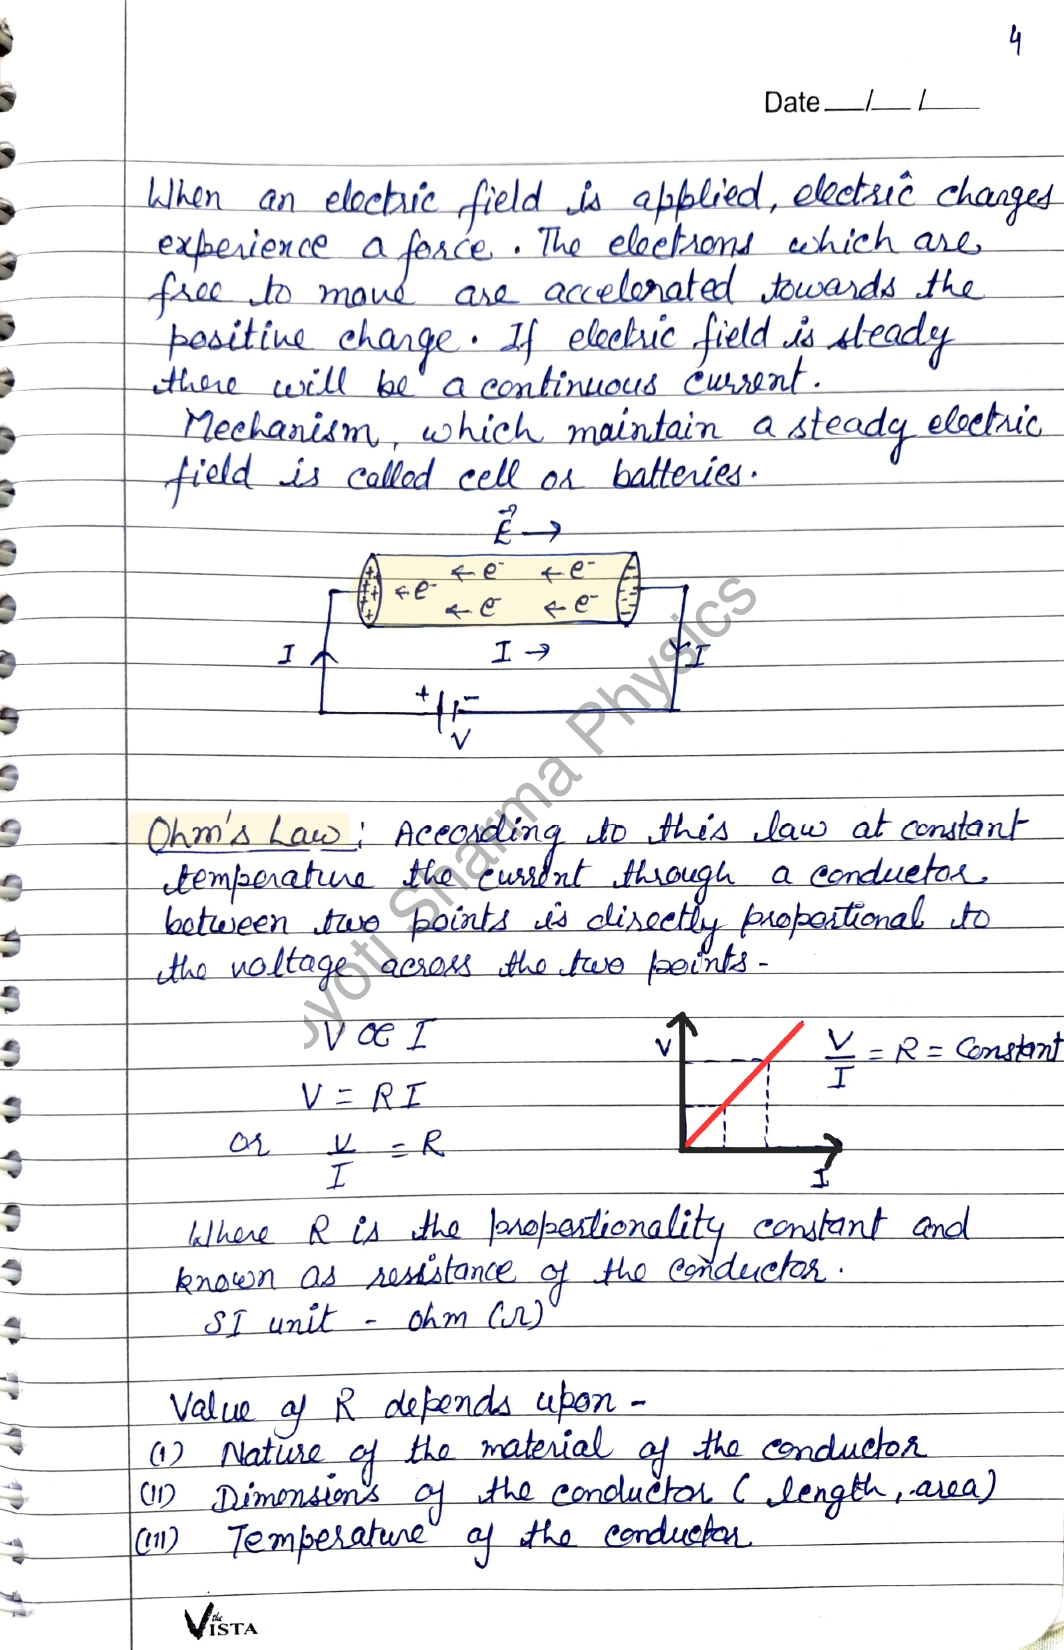 4
Date __/__/__
When an electric field is applied, electric charges
experience a force. The electrons which are
free to move are accelerated towards the
positive charge. If electric field is steady
there will be a continuous current.
Mechanism, which maintain a steady electric
field is called cell or batteries.
E⃗ →
← e⁻ ← e⁻
← e⁻
← e⁻ ← e⁻
I I → I
+ −
V
Ohm's Law: According to this law at constant
temperature the current through a conductor
between two points is directly proportional to
the voltage across the two points -
V ∝ I
V = RI
or V/I = R
V
I
V/I = R = Constant
Where R is the proportionality constant and
known as resistance of the conductor.
SI unit - ohm (Ω)
Value of R depends upon -
(I) Nature of the material of the conductor
(II) Dimensions of the conductor (length, area)
(III) Temperature of the conductor
Jyoti Sharma Physics
the VISTA